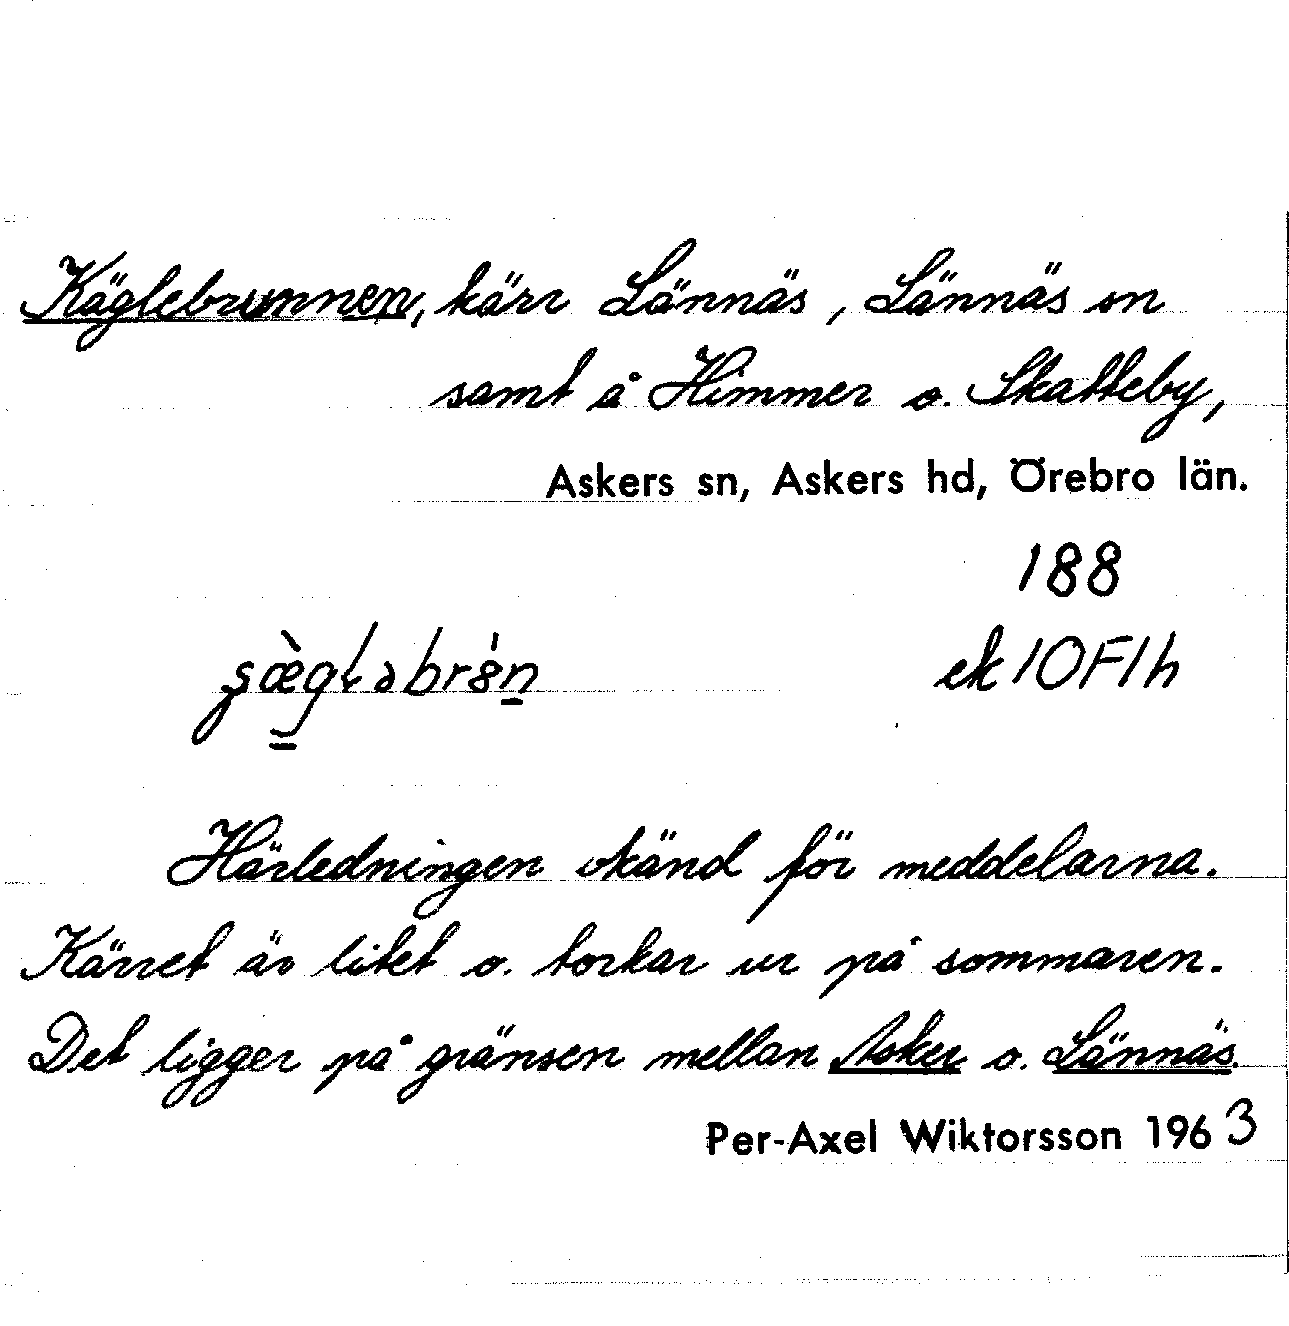 Käglebrunnen, kärr Lännäs, Lännäs sn
samt å Himmer o. Skatteby,
Askers sn, Askers hd, Örebro län.
188
ek 10F1h
Härledningen okänd för meddelarna.
Kärret är litet o. torkar ur på sommaren.
Det ligger på gränsen mellan Asker o. Lännäs.
Per-Axel Wiktorsson 1963